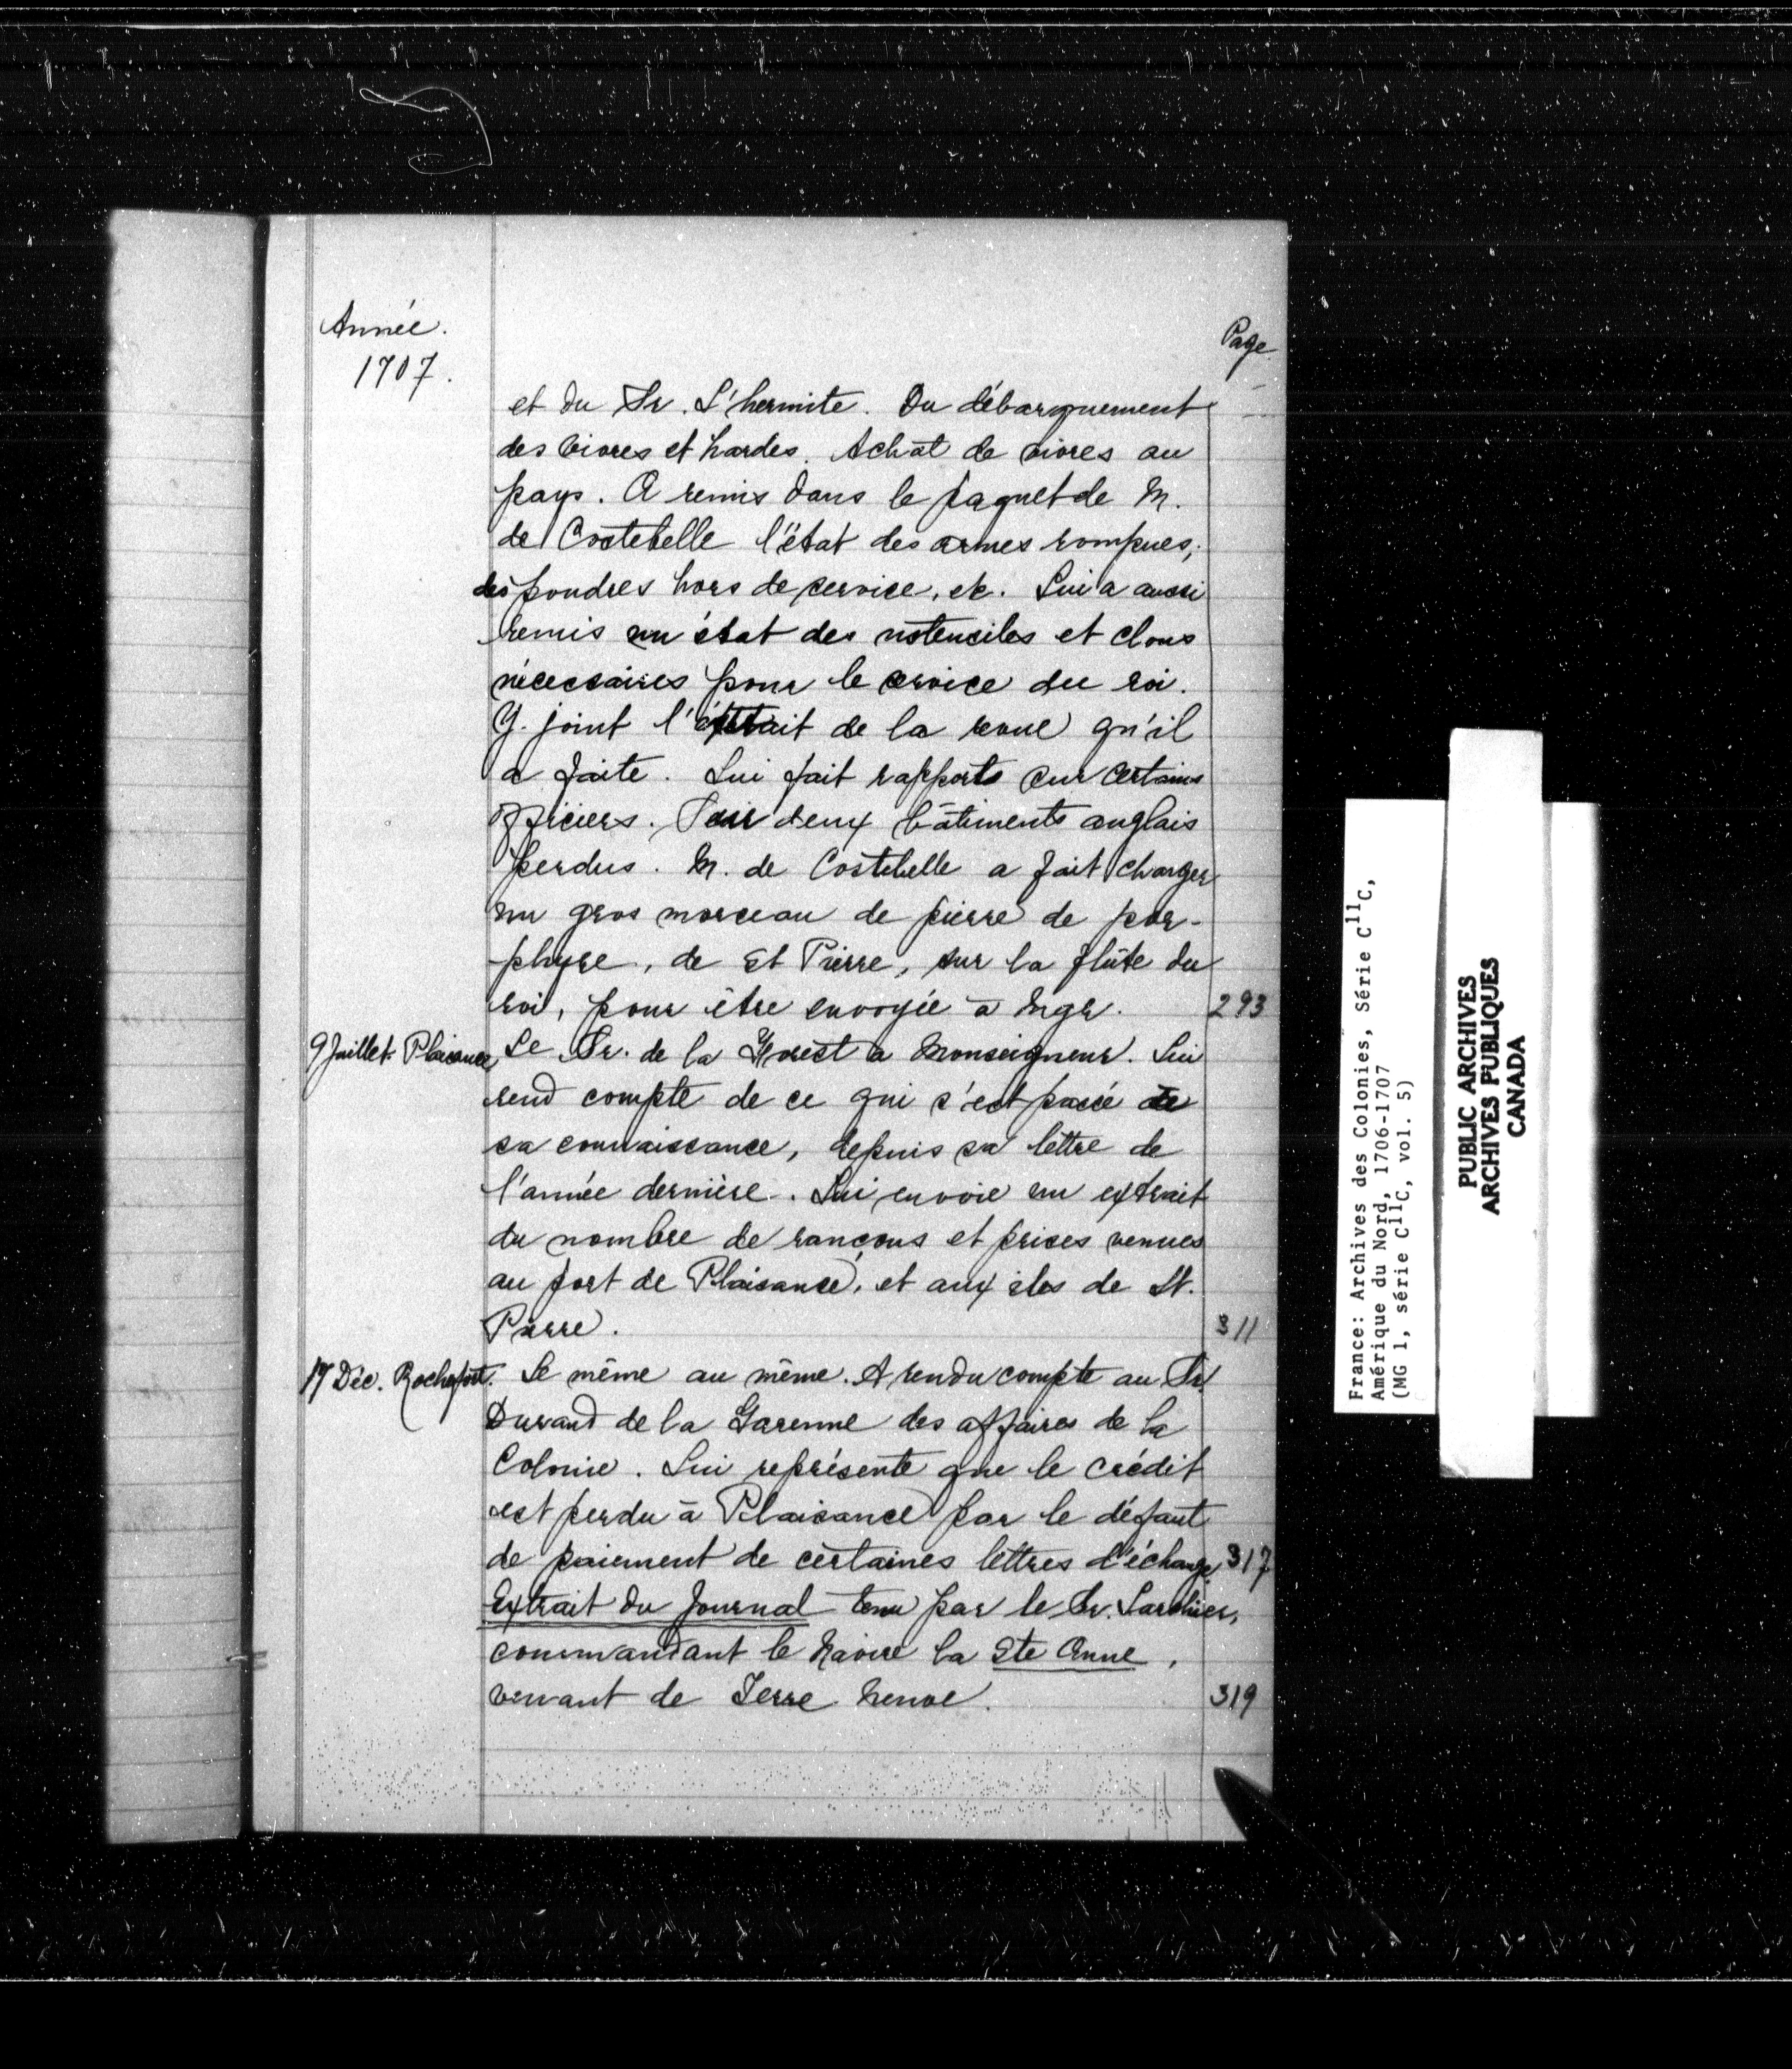 Année.
Page
1707.
et du Sr. L'hermite. Du débarquement
des vivres et hardes. Achat de vivres au
pays. A remis dans le paquet de M.
de Costebelle l'état des armes rompues,
des poudres hors de service, etc. Lui a aussi
remis un état des ustensiles et clous
nécessaires pour le service du roi.
Y. joint l'extrait de la revue qu'il
a faite. Lui fait rapports sur certains
officiers. Sur deux bâtiments anglais
perdus. M. de Costebelle a fait charger
un gros morceau de pierre de por-
-phyre, de St Pierre, sur la flûte du
roi, pour être envoyée à Mgr. 293
9 Juillet. Plaisance, Le Sr. de la Forest à Monseigneur. Lui
rend compte de ce qui s'est passé de
sa connaissance, depuis sa lettre de
l'année dernière. Lui envoie un extrait
du nombre de rançons et prises venues
au fort de Plaisance, et aux îles de St.
Pierre. 311
17 Déc. Rochefort. Le même au même. A rendu compte au Sr
Durand de la Garenne des affaires de la
Colonie. Lui représente que le crédit
est perdu à Plaisance par le défaut
de paiement de certaines lettres d'échange. 317
Extrait du Journal tenu par le Sr.
commandant le navire la Ste Anne,
venant de Terre Neuve. 319
France: Archives des Colonies, série C11C,
Amérique du Nord, 1706-1707
(MG 1, série C11C, vol. 5)
PUBLIC ARCHIVES
ARCHIVES PUBLIQUES
CANADA